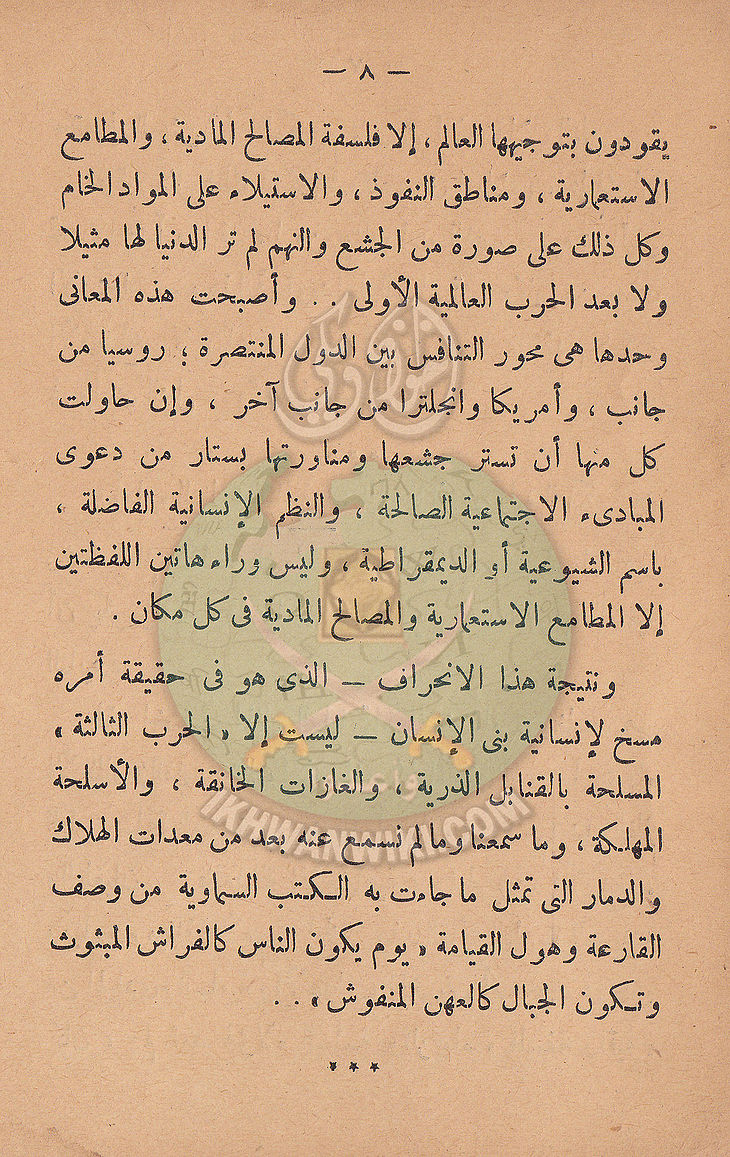 — ٨ —
يقودون بتوجيهها العالم ، إلا فلسفة المصالح المادية ، والمطامع
الاستعمارية ، ومناطق النفوذ ، والاستيلاء على المواد الخام
وكل ذلك على صورة من الجشع والنهم لم تر الدنيا لها مثيلا
ولا بعد الحرب العالمية الأولى . . وأصبحت هذه المعانى
وحدها هى محور التنافس بين الدول المنتصرة ؛ روسيا من
جانب ، وأمريكا وانجلترا من جانب آخر ، وإن حاولت
كل منها أن تستر جشعها ومناورتها بستار من دعوى
المبادىء الاجتماعية الصالحة ، والنظم الإنسانية الفاضلة ،
باسم الشيوعية أو الديمقراطية ، وليس وراء هاتين اللفظتين
إلا المطامع الاستعمارية والمصالح المادية فى كل مكان .
ونتيجة هذا الانحراف — الذى هو فى حقيقة أمره
مسخ لإنسانية بنى الإنسان — ليست إلا « الحرب الثالثة »
المسلحة بالقنابل الذرية ، والغازات الخانقة ، والأسلحة
المهلكة ، وما سمعنا وما لم نسمع عنه بعد من معدات الهلاك
والدمار التى تمثل ما جاءت به الكتب السماوية من وصف
القارعة وهول القيامة « يوم يكون الناس كالفراش المبثوث
وتكون الجبال كالعهن المنفوش » . .
***
IKHWANWIKI.COM